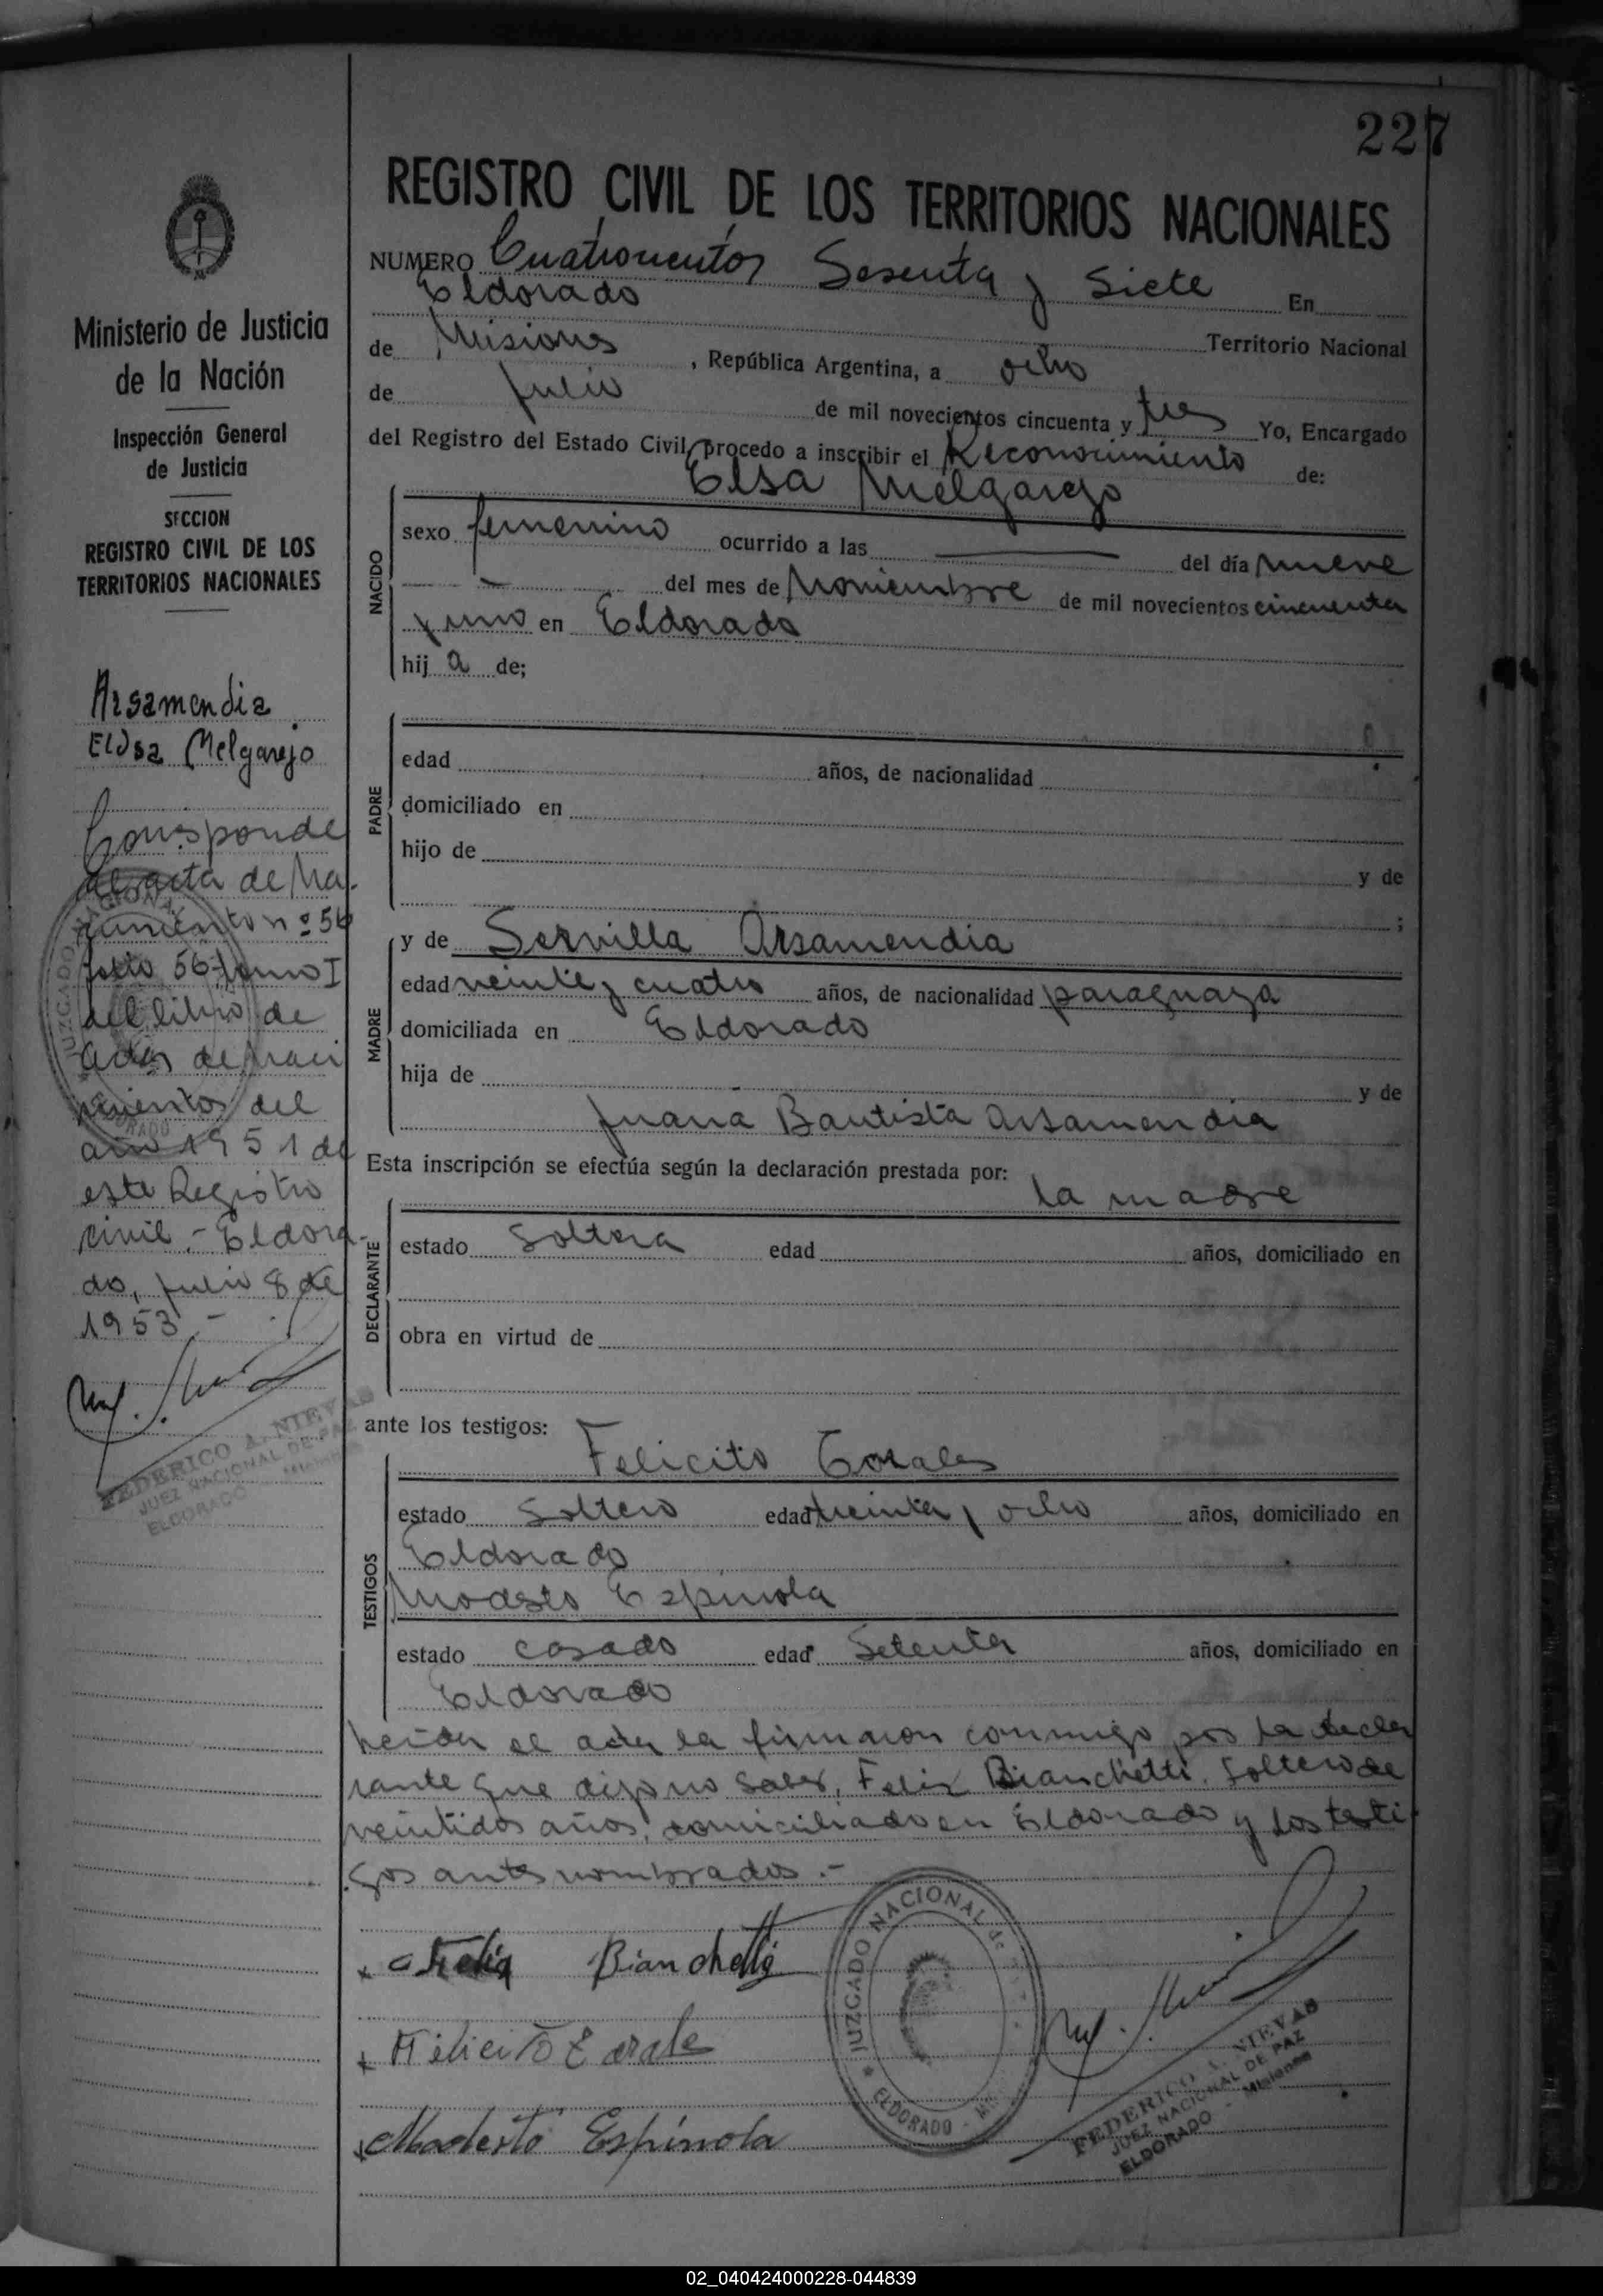 227
REGISTRO CIVIL DE LOS TERRITORIOS NACIONALES
NUMERO Cuatrocientos Sesenta y Siete En
Eldorado Territorio Nacional
de Misiones, República Argentina, a ocho
de Julio de mil novecientos cincuenta y tres Yo, Encargado
del Registro del Estado Civil, procedo a inscribir el Reconocimiento de:
Elsa Melgarejo
NACIDO
sexo femenino ocurrido a las del día nueve
del mes de Noviembre de mil novecientos cincuenta
y uno en Eldorado
hij a de;
PADRE
edad años, de nacionalidad
domiciliado en
hijo de y de
;
MADRE
y de Servilla Arsamendia
edad veinte y cuatro años, de nacionalidad paraguaya
domiciliada en Eldorado
hija de y de
Juana Bautista Arsamendia
Esta inscripción se efectúa según la declaración prestada por:
la madre
DECLARANTE
estado Soltera edad años, domiciliado en
obra en virtud de
ante los testigos:
TESTIGOS
Felicito Corales
estado Soltero edad treinta y ocho años, domiciliado en
Eldorado
Modesto Espinola
estado casado edad Setenta años, domiciliado en
Eldorado
Leida el acta la firmaron conmigo por la decla
rante que dijo no saber, Felix Bianchetti, Soltero de
veintidos años, domiciliado en Eldorado y los testi
gos antes nombrados.-
Felix Bianchetti
Modesto Espínola
JUZGADO NACIONAL de
ELDORADO
FEDERICO A. NIEVAS
JUEZ NACIONAL DE PAZ
ELDORADO - Misiones
Ministerio de Justicia
de la Nación
Inspección General
de Justicia
SECCION
REGISTRO CIVIL DE LOS
TERRITORIOS NACIONALES
Arsamendia
Elsa Melgarejo
Corresponde
al acta de Na-
cimiento nº 56
folio 56 tomo I
del libro de
Actas de naci
mientos del
año 1951 de
este Registro
civil.- Eldora-
do, Julio 8 de
1953.-
JUZGADO NACIONAL
ELDORADO
FEDERICO A. NIEVAS
JUEZ NACIONAL DE PAZ
ELDORADO Misiones
02_040424000228-044839